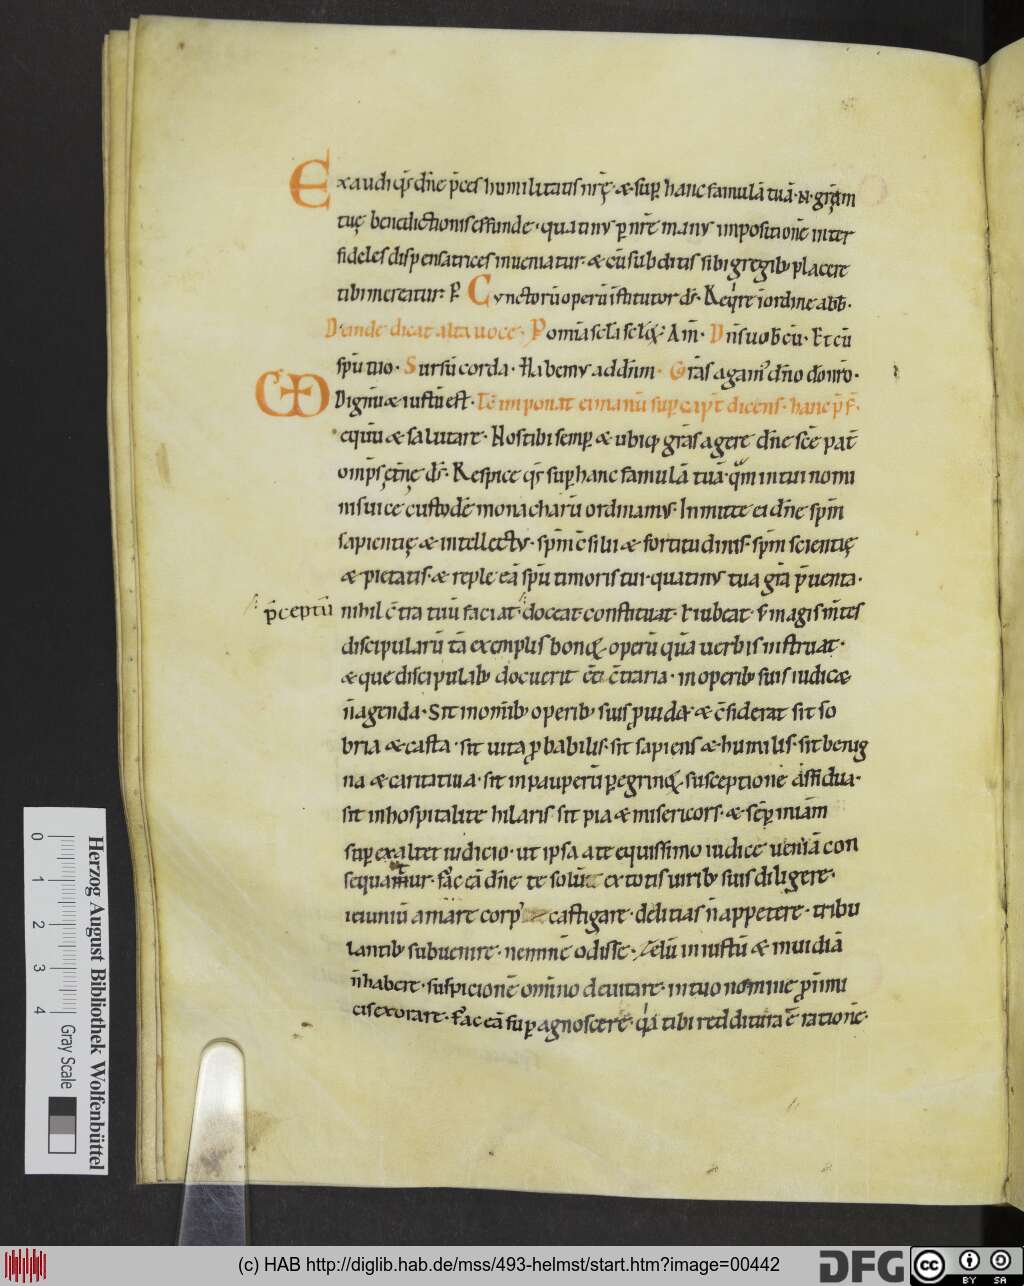 Exaudi q̄s dn̄e p̄ces humilitatis nr̄ę · & sup̱ hanc famulā tuā · N · grām
tuę benedictionis effunde · quatinus p̱ nr̄e manus impositionē inter
fideles dispensatrices inueniatur · & cū subditis sibi gregib; placere
tibi mereatur · P̄ Cunctorū operū īstitutor ds̄ · Reqͥre ī ordine abb̄ ·
Deinde dicat alta uoce · P omīa scl̄a scl̄oꝝ · Am̄ · Dn̄s uob̄cū · Et cū
spū tuo · Sursū corda · Habemus ad dn̄m · Grās agam dn̄o dō nr̄o ·
Dignū & iustū est · Tc̄ imponat ei manū sup̱ capt̄ dicens · hanc p̄f ·
equū & salutare · Nos tibi semp̱ & ubiq; grās agere dn̄e scē pat̄
omp̄s etn̄ę ds̄ · Respice q̄s sup̱ hanc famulā tuā · qm̄ in tui nomi
nis uice custodē monacharū ordinamus · Inmitte ei dn̄e spm̄
sapientię & intellectus · spm̄ c̄silii & fortitudinis · spm̄ scientię
& pietatis · & reple eā spū timoris tui · quatinus tua grā p̄uenta ·
p̄ceptū nihil c̄tra tuū faciat doceat constituat · ł iubeat · s; magis m̄tes
discipularū tā exemplis bonoꝝ operū quā uerbis instruat ·
& que discipulab; docuerit c̄traria · in operib; suis iudicæ
n̄ agenda · Sit in om̄ib; operib; suis ꝓuida · & c̄siderat sit so
bria & casta · sit uita ꝓbabilis · sit sapiens & humilis · sit benig
na & caritatiua · sit in pauperū p̱egrinoꝝ susceptione assidua ·
sit in hospitalite hilaris sit pia & misericors · & semp̱ in iām
sup̱exaltet iudicio · ut ipsa a te equissimo iudice ueniā con
sequamur · fac eā dn̄e te solū ex totis uirib; suis diligere ·
ieiuniū amare corp castigare · delitias n̄ appetere · tribu
lantib; subuenire · neminē odisse · zelū iniustū & inuidiā
n̄ habere · suspicionē omīno deuitare · in tuo nomine ꝓximi
cis exorare · fac eā sup̱ agnoscere · qͥa tibi redditura ē rationē ·
0 1 2 3 4
Gray Scale
Herzog August Bibliothek Wolfenbüttel
(c) HAB http://diglib.hab.de/mss/493-helmst/start.htm?image=00442
DFG
cc BY SA